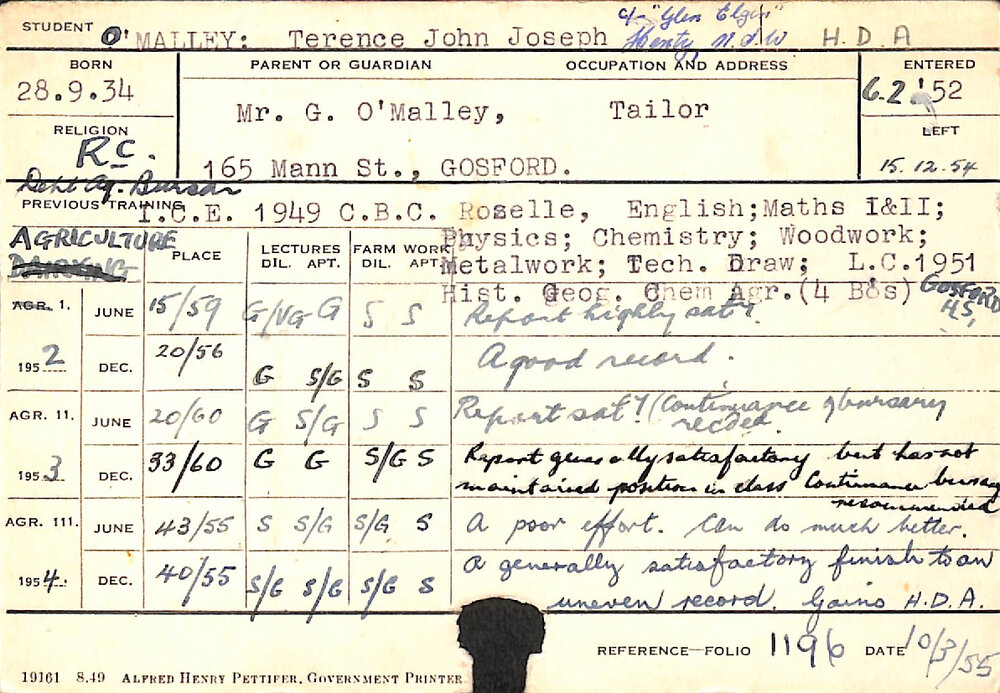 c/- "Glen Elgin"
STUDENT O'MALLEY: Terence John Joseph Henty N.S.W H.D.A
BORN PARENT OR GUARDIAN OCCUPATION AND ADDRESS ENTERED
28.9.34 Mr. G. O'Malley, Tailor 6.2.'52
RELIGION LEFT
RC. 165 Mann St., GOSFORD. 15.12.54
Dept Ag. Bursar
PREVIOUS TRAINING I.C.E. 1949 C.B.C. Roselle, English; Maths I&II;
AGRICULTURE Physics; Chemistry; Woodwork;
DAIRYING PLACE LECTURES DIL. APT. FARM WORK DIL. APT. Metalwork; Tech. Draw; L.C.1951
Hist. Geog. Chem Agr.(4 B8s) GOSFORD H.S.
AGR. 1. JUNE 15/59 G/VG G S S Report highly sat'y.
1952 DEC. 20/56 G S/G S S A good record.
AGR. 11. JUNE 20/60 G S/G S S Report sat'y (Continuance of bursary
recded.
1953 DEC. 33/60 G G S/G S Report generally satisfactory but has not
maintained position in class Continuance bursary
recommended
AGR. 111. JUNE 43/55 S S/G S/G S A poor effort. Can do much better.
1954. DEC. 40/55 S/G S/G S/G S A generally satisfactory finish to an
uneven record. Gains H.D.A.
REFERENCE—FOLIO 1196 DATE 10/3/55
19161 8.49 ALFRED HENRY PETTIFER, GOVERNMENT PRINTER